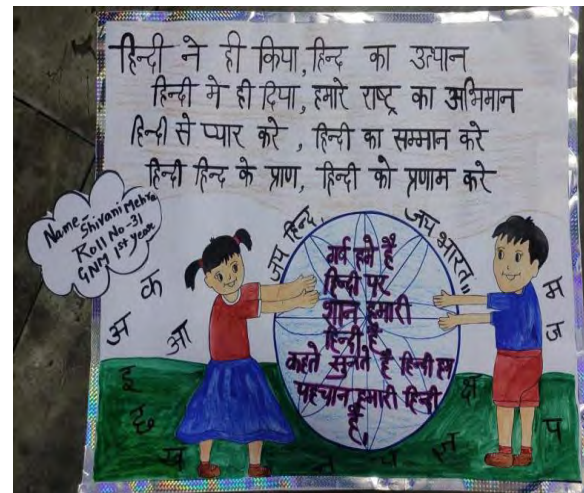 हिन्दी ने ही किया, हिन्द का उत्पान
हिन्दी मे ही दिया, हमारे राष्ट्र का अभिमान
हिन्दी से प्यार करे, हिन्दी का सम्मान करे
हिन्दी हिन्द के प्राण, हिन्दी को प्रणाम करे
Name Shivani Mehra
Roll No-31
GNM 1st year
जय हिन्द,
जय भारत॥
गर्व हमे है
हिन्दी पर,
शान हमारी
हिन्दी है
कहते सुनते है हिन्दी हम
पहचान हमारी हिन्दी
है।
क
अ
आ
इ
छ
ख
म
ज
क्ष
प